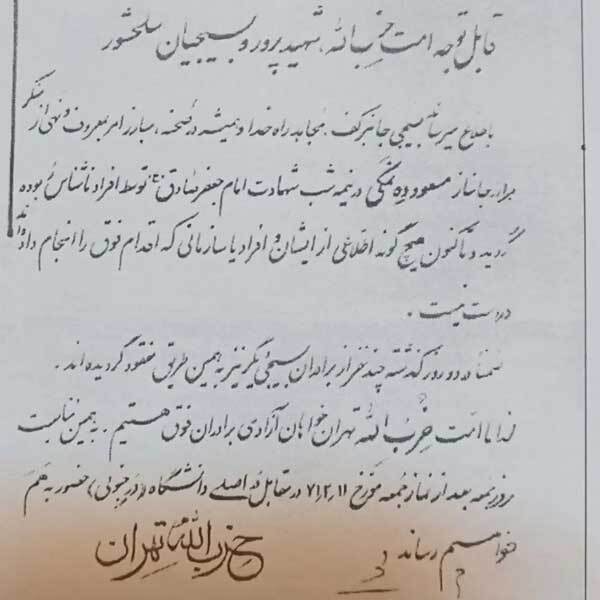 قابل توجه امت حزب الله، شهید پرور و بسیجیان سلحشور
باطلاع میرساند بسیجی جانبرکف، مجاهد راه خدا و همیشه در صحنه، مبارز امر بمعروف و نهی از منکر
برادر جانباز مسعود ده نمکی در نیمه شب شهادت امام جعفر صادق (ع) توسط افراد ناشناس ربوده
گردید و تاکنون هیچ گونه اطلاعی از ایشان و افراد یا سازمانی که اقدام فوق را انجام داده اند
در دست نیست.
ضمناً در دو روز گذشته چند نفر از برادران بسیجی دیگر نیز به همین طریق مفقود گردیده اند.
لذا ما امت حزب الله تهران خواهان آزادی برادران فوق هستیم. به همین مناسبت
روز جمعه بعد از نماز جمعه مورخ ۷۱،۲،۱۱ در مقابل در اصلی دانشگاه (در جنوبی) حضور به هم
خواهیم رساند
حزب الله تهران